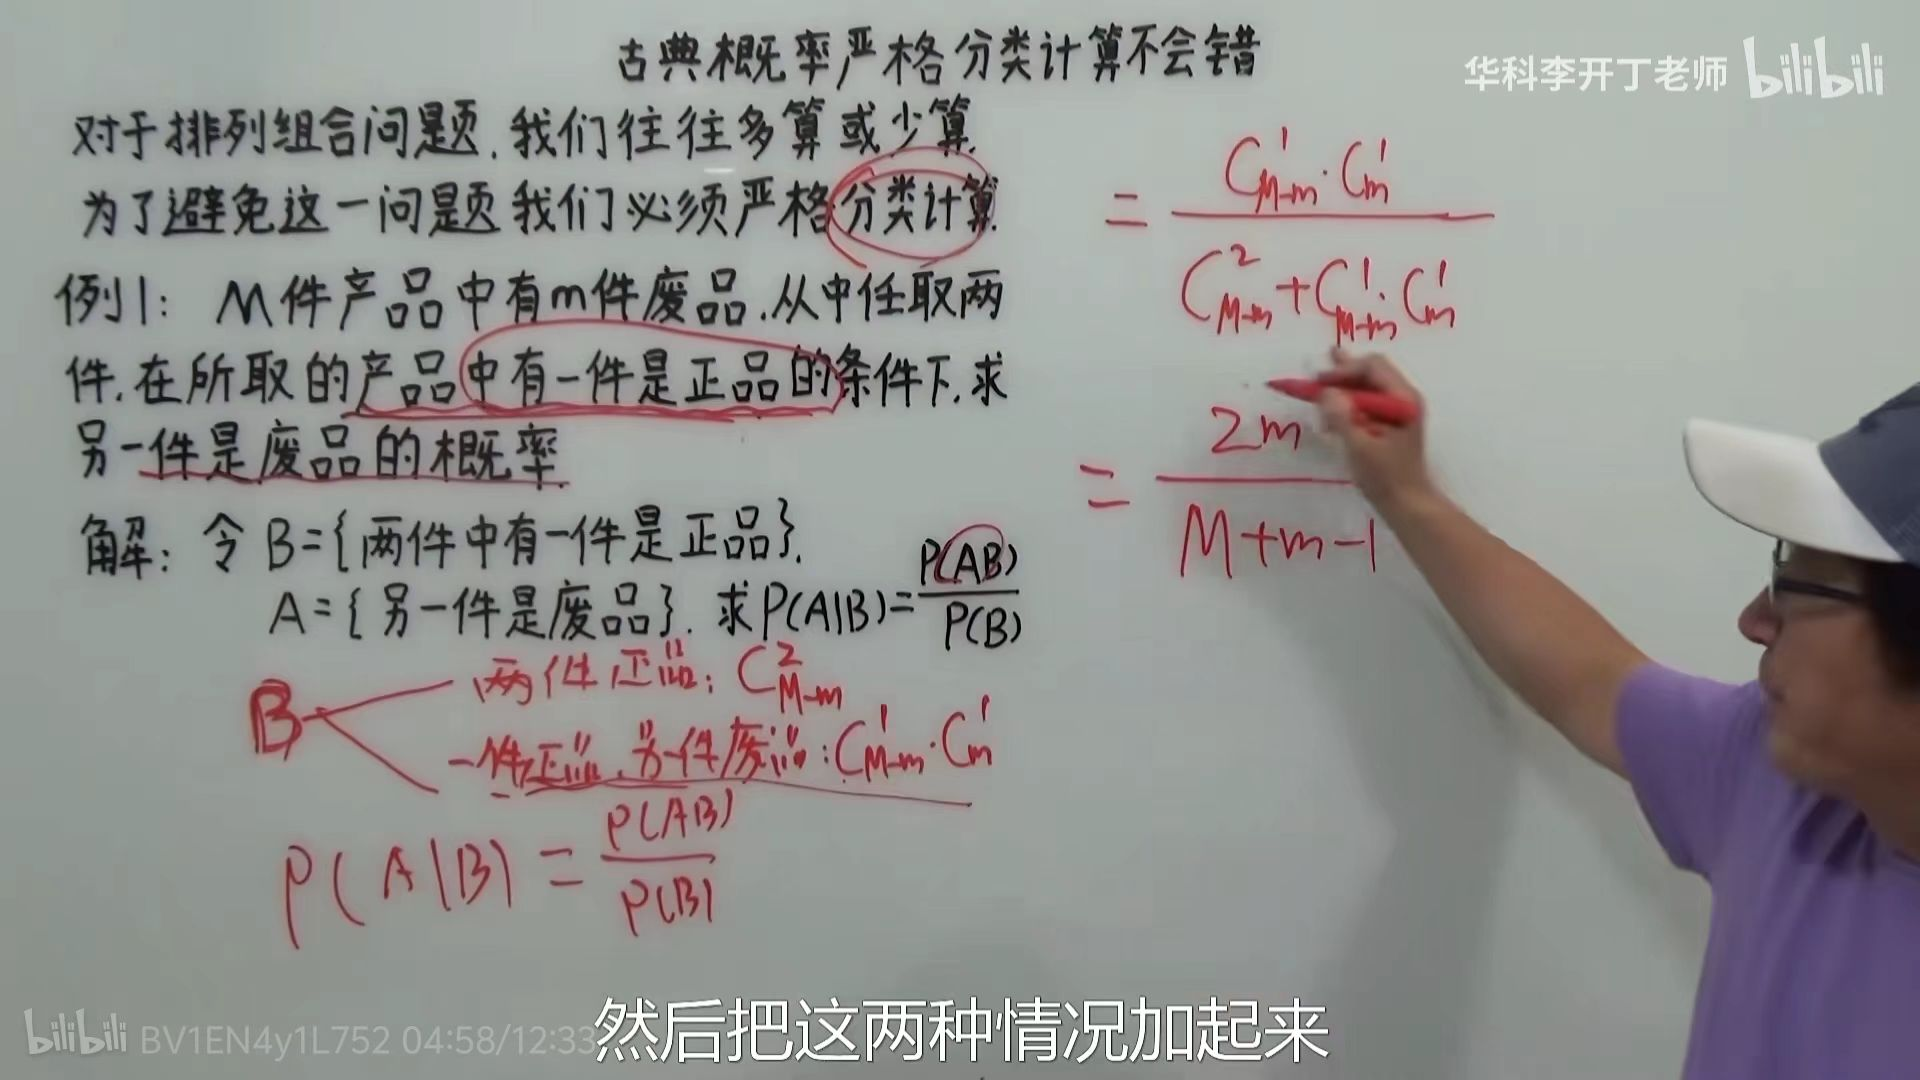 古典概率严格分类计算不会错
华科李开丁老师 bilibili
对于排列组合问题.我们往往多算或少算.
为了避免这一问题我们必须严格分类计算.
例1: M件产品中有m件废品.从中任取两
件.在所取的产品中有一件是正品的条件下.求
另一件是废品的概率.
解: 令 B={两件中有一件是正品}.
A={另一件是废品}. 求P(A|B)=P(AB)/P(B)
B 两件正品: C²_{M-m}
一件正品.另一件废品: C¹_{M-m}·C¹_m
P(A|B) = P(AB)/P(B)
= C¹_{M-m}·C¹_m / C²_{M-m}+C¹_{M-m}·C¹_m
= 2m / M+m-1
然后把这两种情况加起来
bilibili BV1EN4y1L752 04:58/12:33